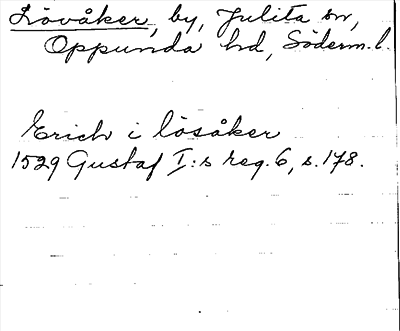 Lövåker, by, Julita sn,
Oppunda hd, Söderm. l.
Erich i lösåker
1529 Gustaf I:s reg. 6, s. 178.